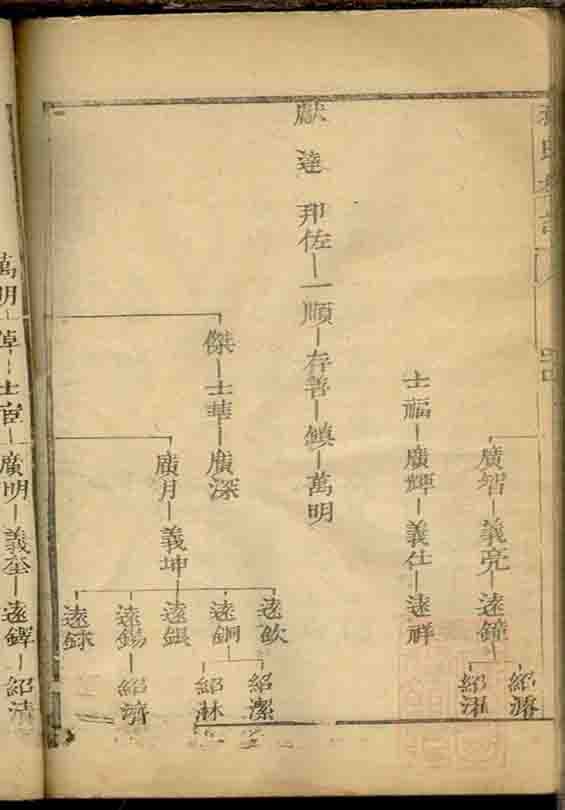 廣智—義亮—遠鐘
紹濬
紹淋
士福—廣輝—義仕—遠祥
獻達 邦佐—一順—存善—鎮—萬明
傑—士華—廣深
廣月—義坤
遠欽
遠銅
遠銀
遠錫
遠銶
紹潔
紹淋
紹濟
萬明
倬—士宦—廣明—義奎—遠鐸—紹清